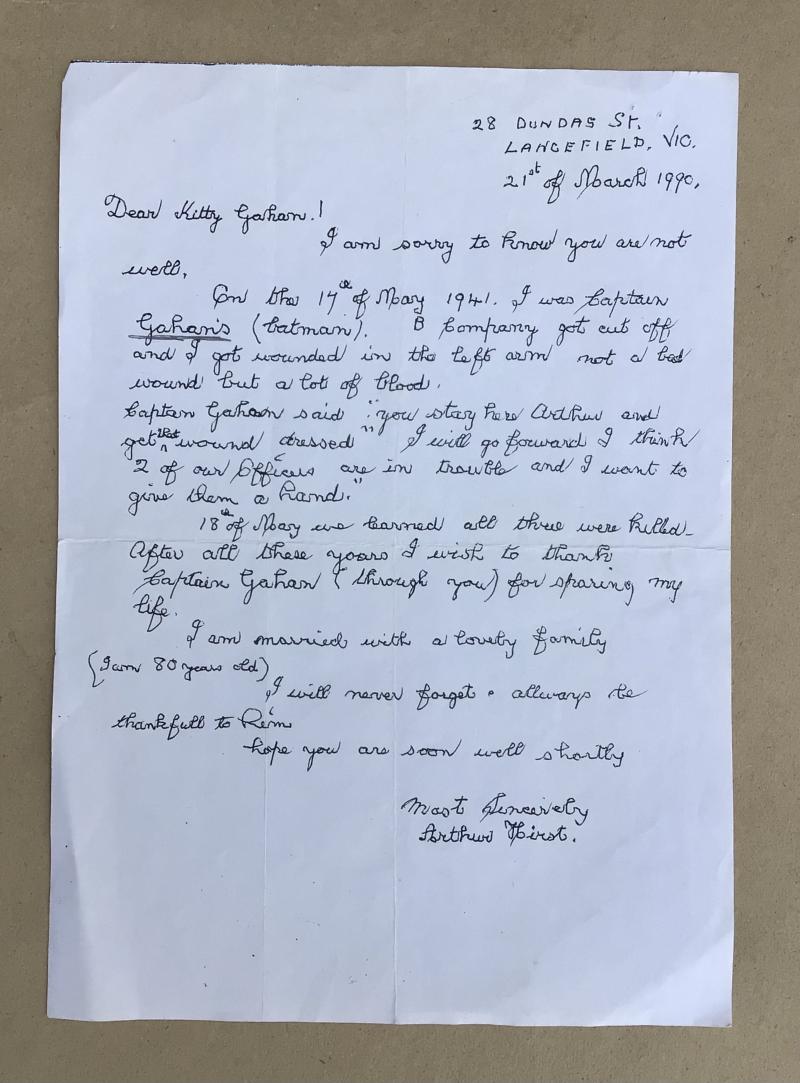 28 DUNDAS St.
LANCEFIELD, VIC.
21st of March 1990.
Dear Kitty Gahan.!
I am sorry to know you are not
well,
On the 17th of May 1941. I was Captain
Gahan's (batman). B Company got cut off
and I got wounded in the left arm not a bad
wound but a lot of blood.
Captan Gahan said "you stay here Arthur and
get that wound dressed" I will go forward I think
2 of our Officers are in trouble and I want to
give them a hand."
18th of May we learned all three were killed_
After all these years I wish to thank
Captain Gahan (through you) for sparing my
life.
I am married with a lovely family
(I am 80 years old)
I will never forget & allways be
thankfull to him
hope you are soon well shortly
Most Sincerely
Arthur Hirst.